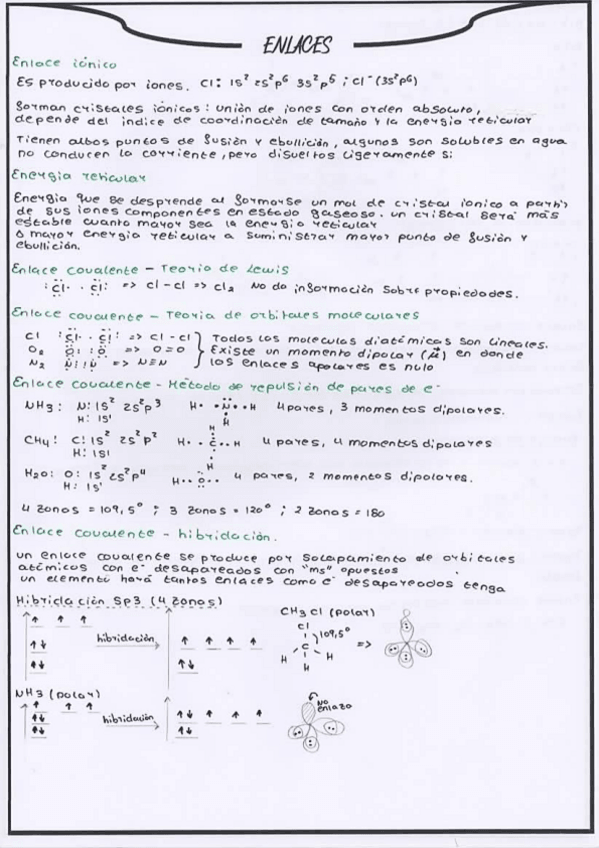 ENLACES
Enlace iónico
Es producido por iones. Cl: 1s² 2s²p⁶ 3s²p⁵ ; Cl⁻ (3s²p⁶)
Forman cristales iónicos: unión de iones con orden absoluto,
depende del índice de coordinación de tamaño y la energía reticular
Tienen altos puntos de fusión y ebullición, algunos son solubles en agua
no conducen la corriente, pero disueltos ligeramente si
Energía reticular
Energía que se desprende al formarse un mol de cristal iónico a partir
de sus iones componentes en estado gaseoso. un cristal será más
estable cuanto mayor sea la energía reticular
a mayor energía reticular a suministrar mayor punto de fusión y
ebullición.
Enlace covalente - Teoría de Lewis
:Cl· ·Cl: => Cl-Cl => Cl₂ No da información sobre propiedades.
Enlace covalente - Teoría de orbitales moleculares
Cl :Cl· ·Cl: => Cl-Cl } Todos las moleculas diatómicas son lineales.
O₂ :O: :O: => O=O } Existe un momento dipolar (μ) en donde
N₂ N: :N => N≡N } los enlaces apolares es nulo
Enlace covalente - Método de repulsión de pares de e⁻
NH₃: N: 1s² 2s²p³ H· ·N· ·H 4 pares, 3 momentos dipolares.
H: 1s¹ H
H
CH₄: C: 1s² 2s²p² H· ·C· ·H 4 pares, 4 momentos dipolares
H: 1s¹ H
H₂O: O: 1s² 2s²p⁴ H··O··H 4 pares, 2 momentos dipolares.
H: 1s¹
4 zonas = 109,5° ; 3 zonas = 120° ; 2 zonas = 180
Enlace covalente - hibridación.
un enlace covalente se produce por solapamiento de orbitales
atómicos con e⁻ desapareados con "ms" opuestos
un elemento hará tantos enlaces como e⁻ desapareados tenga
Hibridación sp3 (4 zonas)
hibridación
CH₃Cl (polar)
Cl
109,5°
C =>
H H
H
NH3 (polar)
hibridación
No
enlaza